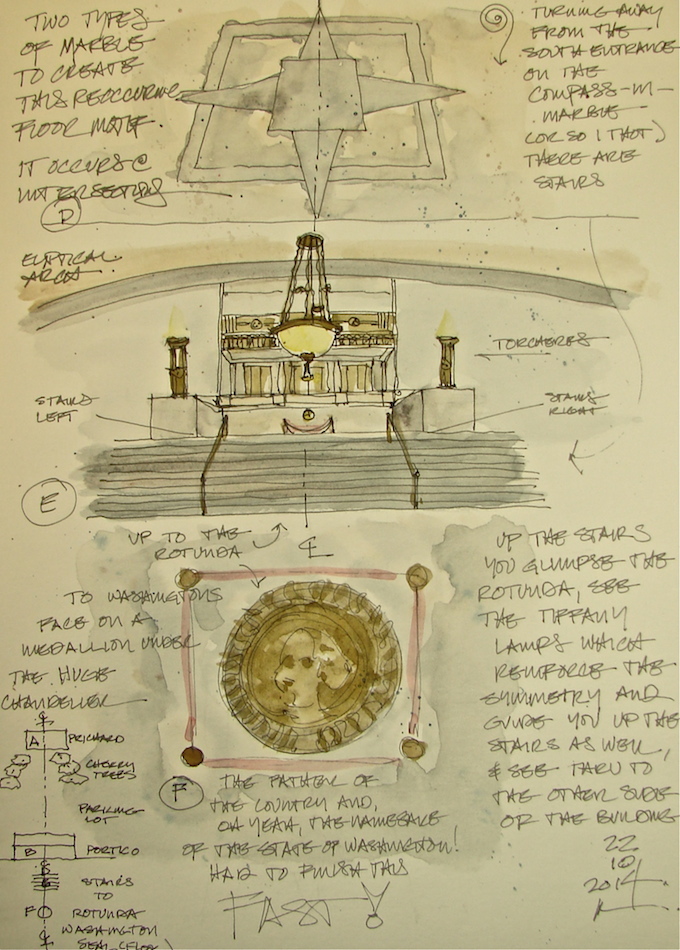 TWO TYPES
OF MARBLE
TO CREATE
THIS REOCCURING
FLOOR MOTIF.
IT OCCURS @
INTERSECTIONS
D
TURNING AWAY
FROM THE
SOUTH ENTRANCE
ON THE
COMPASS-IN-
MARBLE
(OR SO I THOT)
THERE ARE
STAIRS
ELIPTICAL
ARCH
TORCHERES
STAIRS
LEFT
STAIRS
RIGHT
E
UP TO THE
ROTUNDA
CL
TO WASHINGTONS
FACE ON A
MEDALLION UNDER
THE HUGE
CHANDELIER
UP THE STAIRS
YOU GLIMPSE THE
ROTUNDA, SEE
THE TIFFANY
LAMPS WHICH
REINFORCE THE
SYMMETRY AND
GUIDE YOU UP THE
STAIRS AS WELL,
& SEE THRU TO
THE OTHER SIDE
OF THE BUILDING
22
10
2014
A
PRICHARD
CHERRY
TREES
PARKING
LOT
B
PORTICO
STAIRS
TO
F
ROTUNDA
WASHINGTON
SEAL
F
THE FATHER OF
THE COUNTRY AND,
OH YEAH, THE NAMESAKE
OF THE STATE OF WASHINGTON!
HARD TO FINISH THIS
FAST!